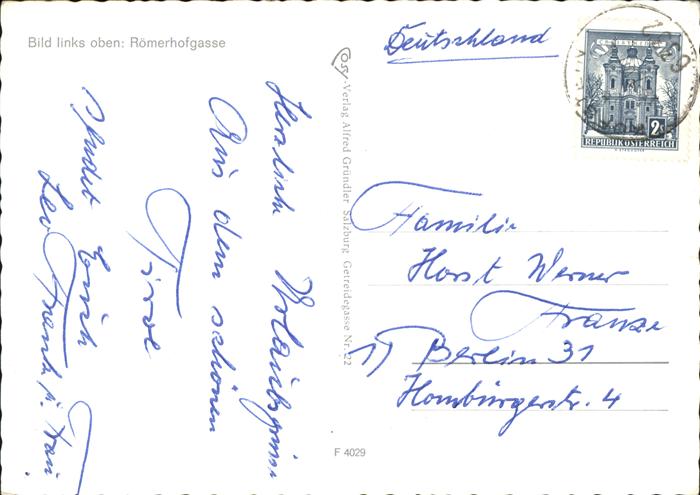 Bild links oben: Römerhofgasse
Herzliche Urlaubsgrüsse
Aus dem schönen
Tirol
Euch
Leo Frank u. Frau
Osy-Verlag Alfred Gründler Salzburg Getreidegasse Nr. 22
F 4029
Deutschland
2S
REPUBLIK ÖSTERREICH
Familie
Horst Werner
Franze
1) Berlin 31
Homburgerstr. 4